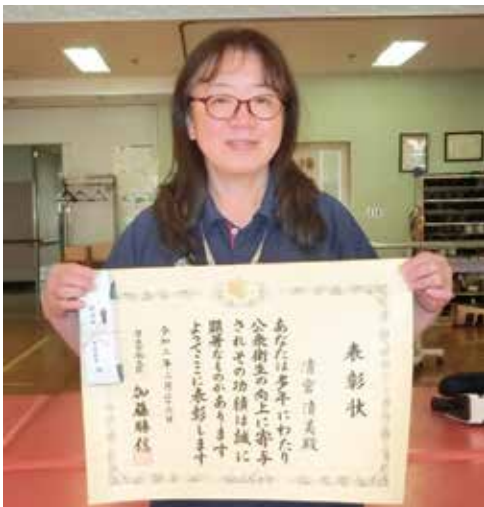 表彰状
清宮清美殿
あなたは多年にわたり
公衆衛生の向上に寄与
されその功績は誠に
顕著なものがあります
よってここに表彰します
令和二年二月二十六日
厚生労働大臣 加藤勝信